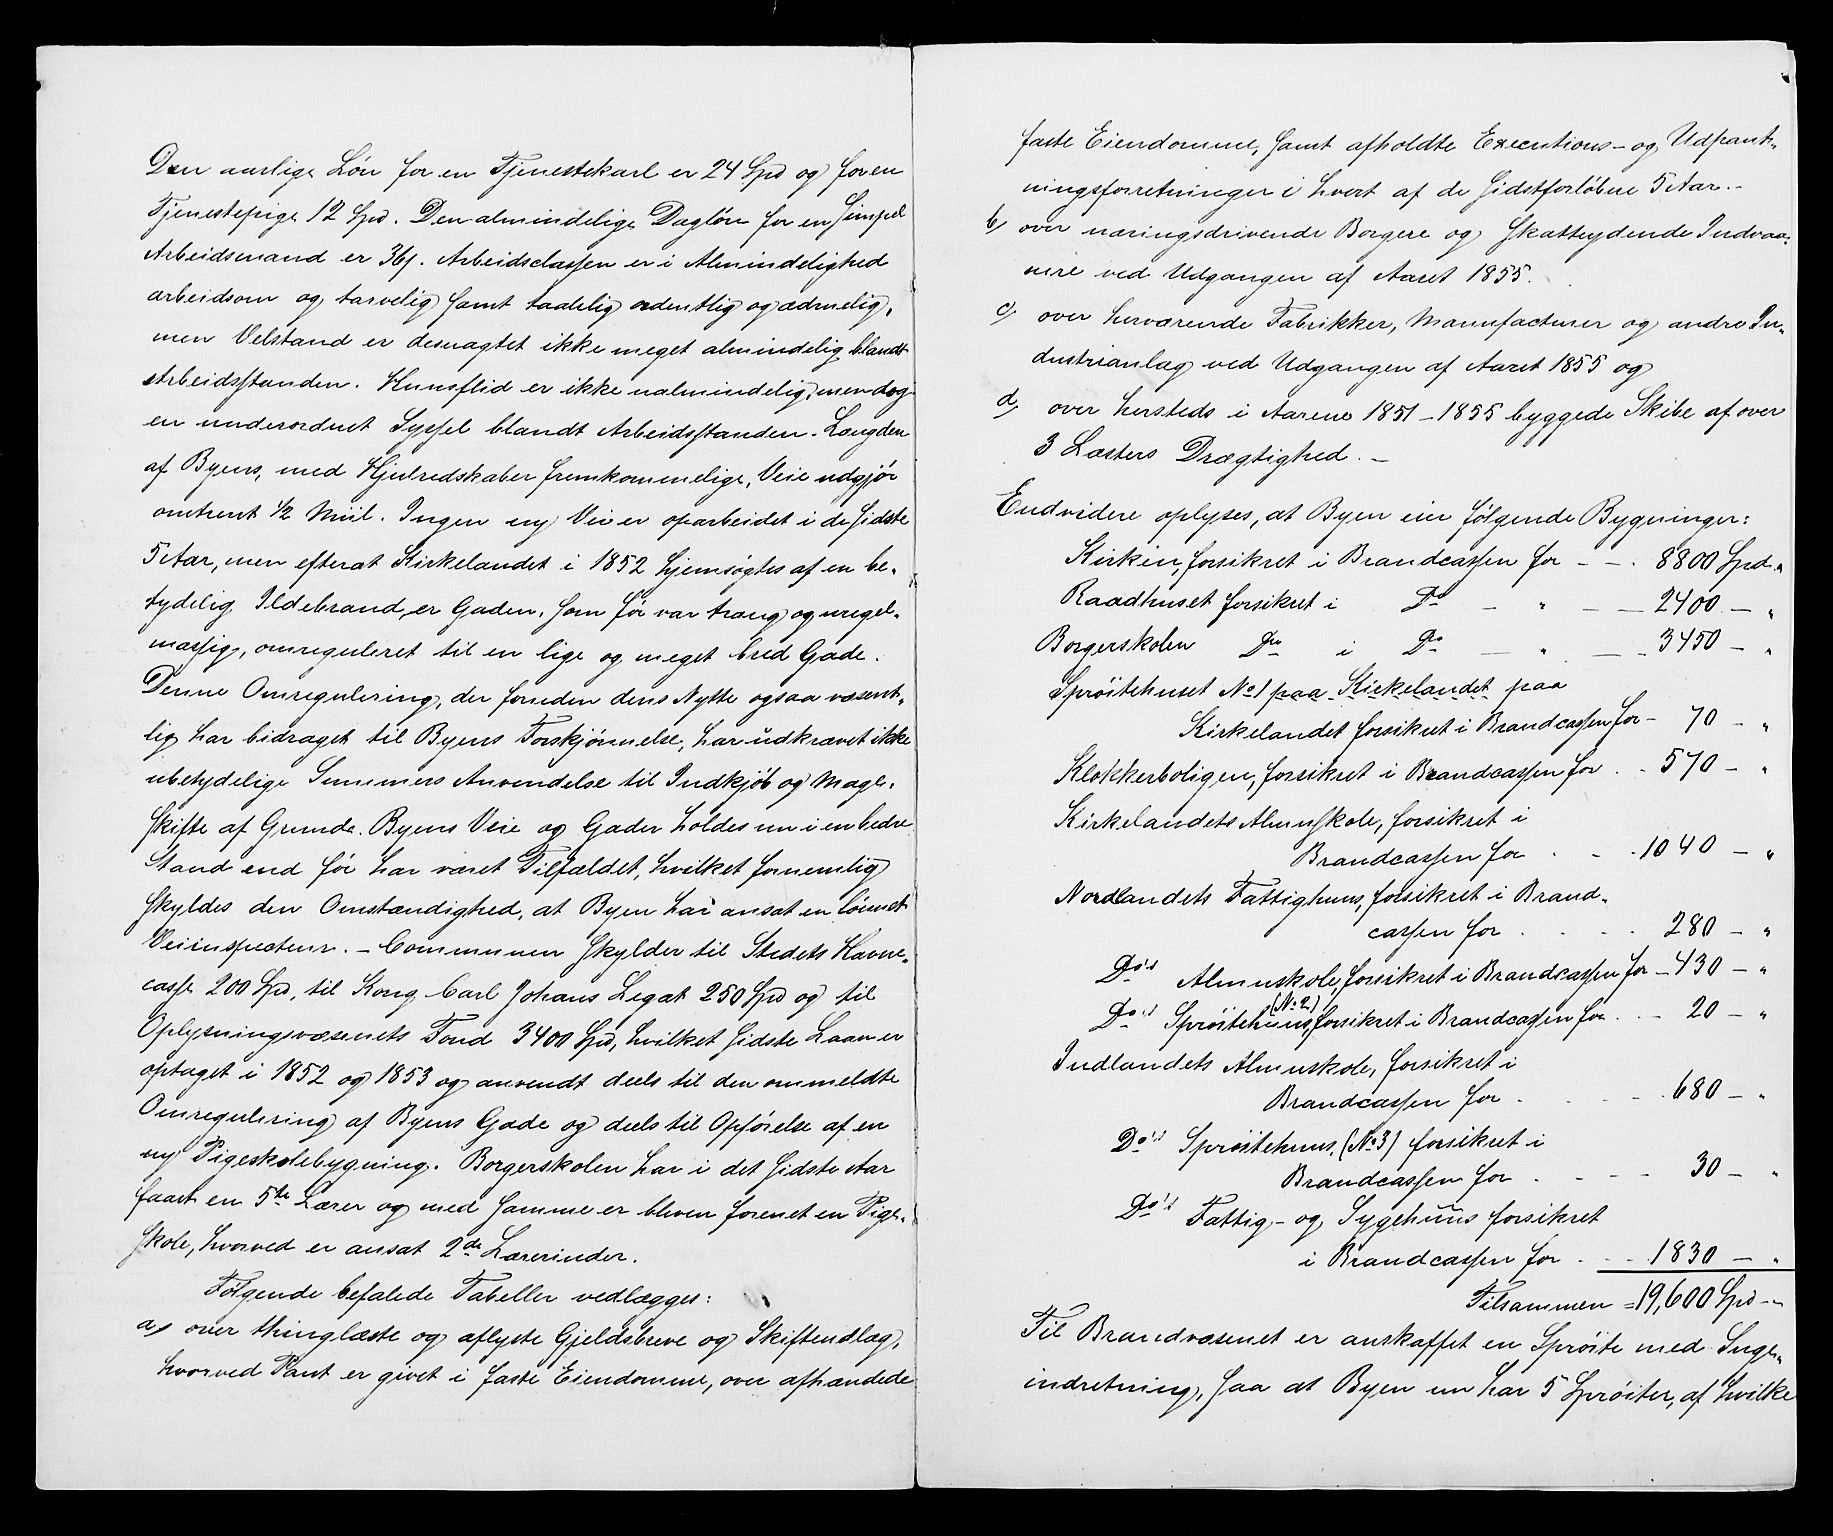 Den aarlige Løn for en Tjenestekarl er 24 Spd og for en
Tjenestepige 12 Spd. Den almindelige Dagløn for en simpel
Arbeidsmand er 36ſ. Arbeidsclassen er i Almindelighed
arbeidsom og tarvelig samt taalelig ordentlig og ædruelig,
men Velstand er desuagtet ikke meget almindelig blandt
Arbeidsstanden. Huusflid er ikke ualmindelig, men dog
en underordnet Syssel blandt Arbeidsstanden. Længden
af Byens, med Hjulredskaber fremkommelige, Veie udgjør
omtrent 1/2 Miil. Ingen ny Vei er oparbeidet i de sidste
5 Aar, men efterat Kirkelandet i 1852 hjemsøgtes af en be-
tydelig Ildebrand, er Gaden, som før var trang og uregel-
mæssig, omreguleret til en lige og meget bred Gade.
Denne Omregulering, der foruden dens Nytte ogsaa væsent-
lig har bidraget til Byens Forskjønnelse, har udkrævet ikke
ubetydelige Summers Anvendelse til Indkjøb og Mage-
skifte af Grunde. Byens Veie og Gader holdes nu i en bedre
Stand end før har været Tilfældet, hvilket fornemlig
skyldes den Omstændighed, at Byen har ansat en lønnet
Veiinspecteur. – Communen skylder til Stedets Havne-
casse 200 Spd, til Kong Carl Johans Legat 250 Spd og til
Oplysningsvæsenets Fond 3400 Spd, hvilket sidste Laan er
optaget i 1852 og 1853 og anvendt deels til den ommeldte
Omregulering af Byens Gade og deels til Opførelse af en
ny Pigeskolebygning. Borgerskolen har i det sidste Aar
faaet en 5te Lærer og med samme er bleven forenet en Pige-
skole, hvorved er ansat 2de Lærerinder.
Følgende befalede Tabeller vedlægges:
a) over thinglæste og aflyste Gjeldsbreve og Skifteudlæg,
hvorved Pant er givet i faste Eiendomme, over afhændede
faste Eiendomme, samt afholdte Executions- og Udpant-
ningsforretninger i hvert af de sidstforløbne 5 Aar. -
b) over næringsdrivende Borgere og skatteydende Indvaa-
nere ved Udgangen af Aaret 1855.
c) over herværende Fabrikker, Manufacturer og andre In-
dustrianlæg ved Udgangen af Aaret 1855 og
d) over hersteds i Aarene 1851 - 1855 byggede Skibe af over
3 Læsters Drægtighed. -
Endvidere oplyses, at Byen eier følgende Bygninger:
Kirken, forsikret i Brandcassen for - - . 8800 Spd. "
Raadhuset forsikret i Do - " - - 2400 - "
Borgerskolen Do i Do - " - - 3450 - "
Sprøitehuset No 1 paa Kirkelandet paa
Kirkelandet forsikret i Brandcassen for - 70 - "
Klokkerboligen, forsikret i Brandcassen for . . 570 - "
Kirkelandets Almueskole, forsikret i
Brandcassen for . - . 1040 - "
Nordlandets Fattighuus, forsikret i Brand-
cassen for . . . . 280 - "
Do's Almuskole, forsikret i Brandcassen for - 430 - "
Do's Sprøitehuus (No 2), forsikret i Brandcassen for . . - 20 - "
Indlandets Almuskole, forsikret i
Brandcassen for . . . . 680 - "
Do's Sprøitehuus, (No 3) forsikret i
Brandcassen for . - - - 30 - "
Do's Fattig- og Sygehuus forsikret
i Brandcassen for . - - . 1830 - "
Tilsammen = 19,600 Spd - "
Til Brandvæsenet er anskaffet en Sprøite med Suge-
indretning, saa at Byen nu har 5 Sprøiter, af hvilke